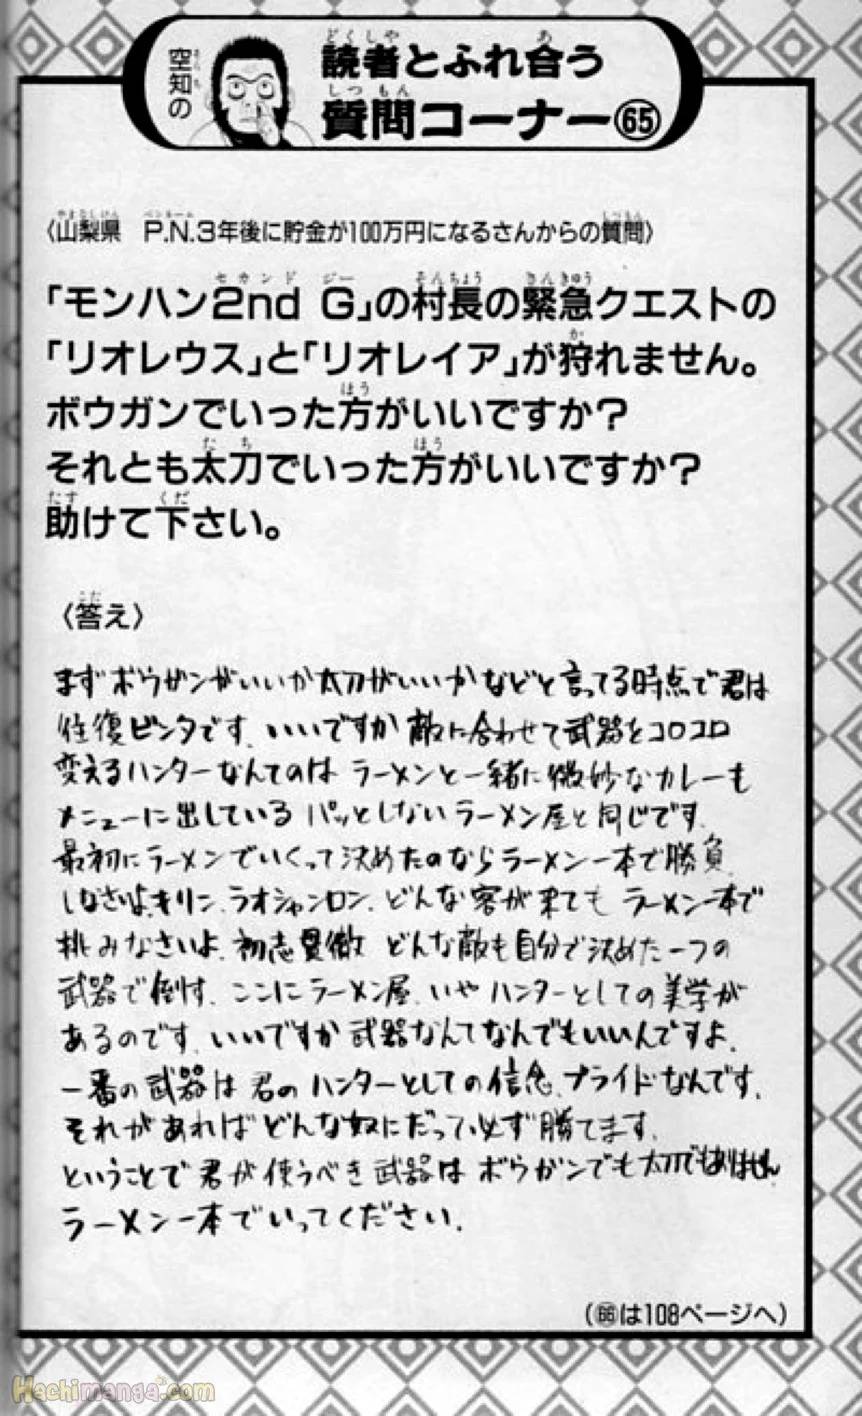 空知の
読者とふれ合う
質問コーナー65
〈山梨県 P.N.3年後に貯金が100万円になるさんからの質問〉
「モンハン2nd G」の村長の緊急クエストの
「リオレウス」と「リオレイア」が狩れません。
ボウガンでいった方がいいですか?
それとも太刀でいった方がいいですか?
助けて下さい。
〈答え〉
まずボウガンがいいか太刀がいいかなどと言ってる時点で君は
往復ビンタです。いいですか敵に合わせて武器をコロコロ
変えるハンターなんてのはラーメンと一緒に微妙なカレーも
メニューに出しているパッとしないラーメン屋と同じです。
最初にラーメンでいくって決めたのならラーメン一本で勝負
しなさいよ。キリン、ラオシャンロン、どんな客が来てもラーメン一本で
挑みなさいよ。初志貫徹 どんな敵も自分で決めた一つの
武器で倒す。ここにラーメン屋、いやハンターとしての美学が
あるのです。いいですか武器なんてなんでもいいんですよ。
一番の武器は君のハンターとしての信念、プライドなんです。
それがあればどんな奴にだって必ず勝てます。
ということで君が使うべき武器はボウガンでも太刀でもありません
ラーメン一本でいってください。
(66は108ページへ)
Hachimanga.com